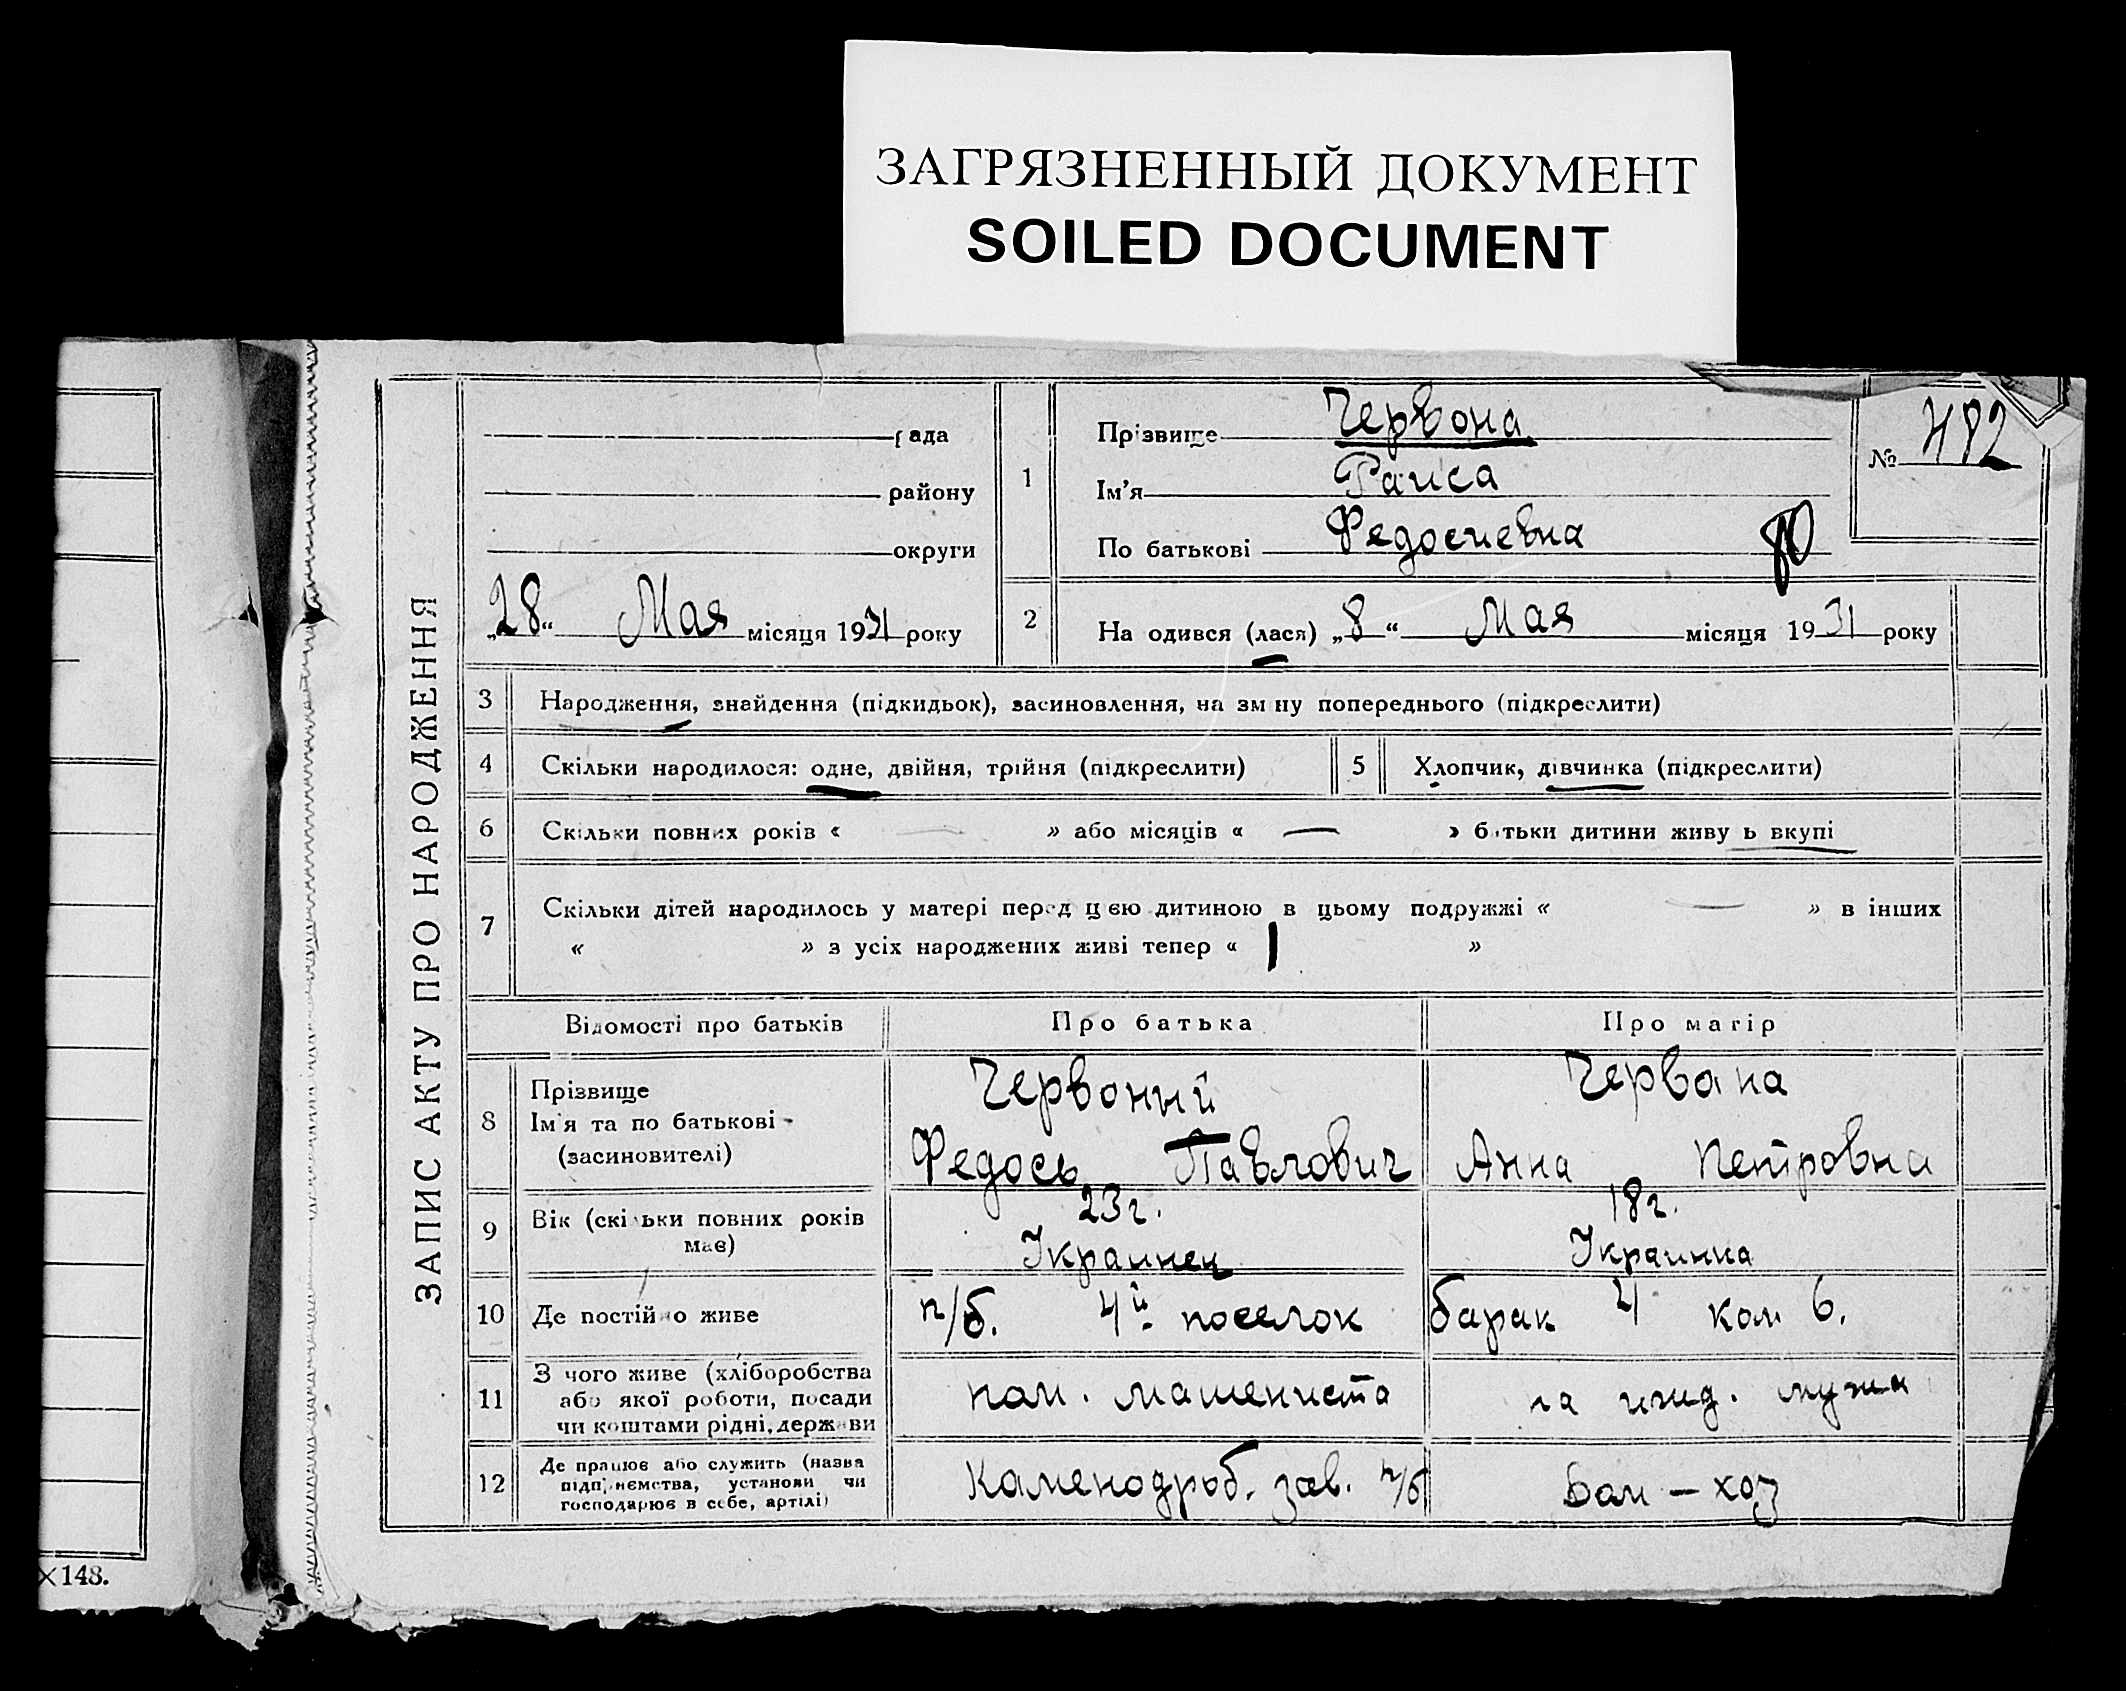 ЗАГРЯЗНЕННЫЙ ДОКУМЕНТ
SOILED DOCUMENT
ЗАПИС АКТУ ПРО НАРОДЖЕННЯ
рада
району
округи
„28“ Мая місяця 1931 року
1
Прізвище Червона
Ім'я Раиса
По батькові Федосиевна
80
№ 482
2
На одився (лася) „8“ Мая місяця 1931 року
3 Народження, знайдення (підкидьок), засиновлення, на зм ну попереднього (підкреслити)
4 Скільки народилося: одне, двійня, трійня (підкреслити)
5 Хлопчик, дівчинка (підкреслити)
6 Скільки повних років « — » або місяців « — » батьки дитини живу ь вкупі
7 Скільки дітей народилось у матері перед цією дитиною в цьому подружжі « — » в інших
« » з усіх народжених живі тепер « 1 »
Відомості про батьків
Про батька
Про матір
8
Прізвище
Ім'я та по батькові
(засиновителі)
Червоный
Федось Павлович
Червона
Анна Петровна
9
Вік (скільки повних років
має)
23 г.
Украинец
18 г.
Украинка
10 Де постійно живе
п/б. 4й поселок
барак 4 ком 6.
11
З чого живе (хліборобства
або якої роботи, посади
чи коштами рідні, держави
пом. машениста
на ижд. мужа
12
Де працює або служить (назва
підприємства, установи чи
господарює в себе, артілі)
Каменодроб. зав. п/б
Дом-хоз
×148.